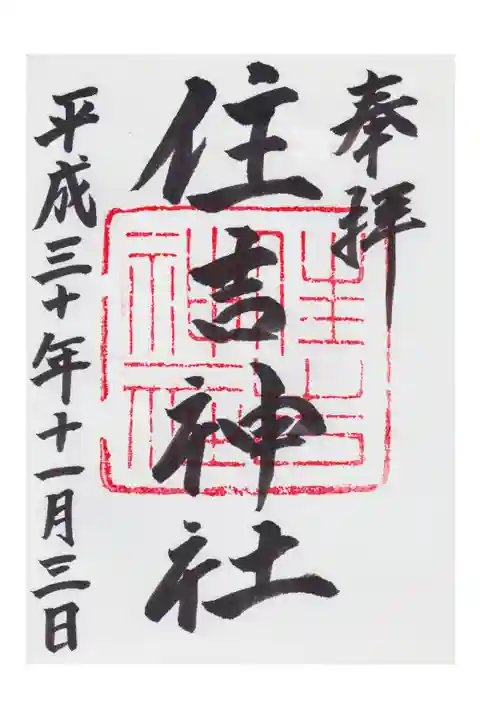 奉拝
住吉神社
平成三十年十一月三日